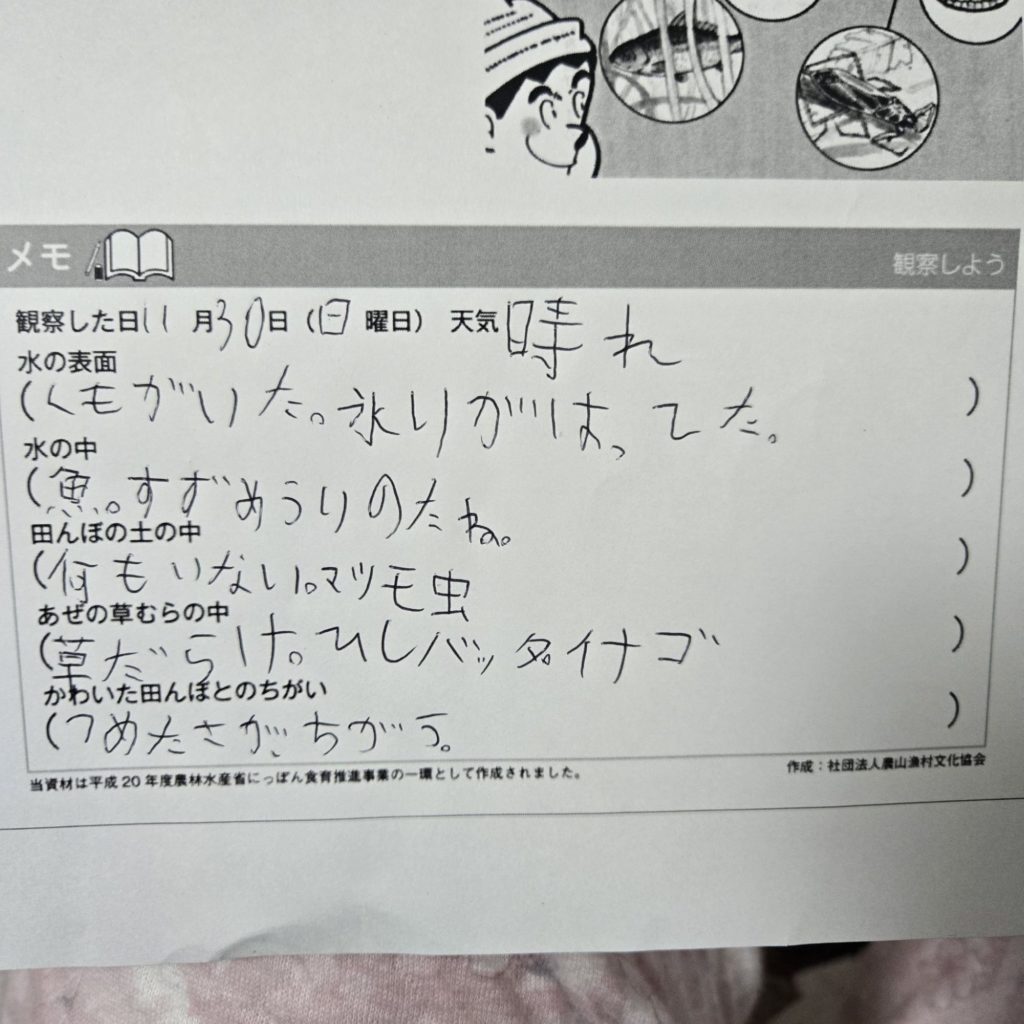 メモ
観察しよう
観察した日 11 月 30 日 (日 曜日) 天気 晴れ
水の表面
(くもがいた。氷りがはってた。)
水の中
(魚。すずめうりのたね。)
田んぼの土の中
(何もいない。マツモ虫)
あぜの草むらの中
(草だらけ。ひしバッタ。イナゴ)
かわいた田んぼとのちがい
(つめたさがちがう。)
当資材は平成20年度農林水産省にっぽん食育推進事業の一環として作成されました。
作成：社団法人農山漁村文化協会